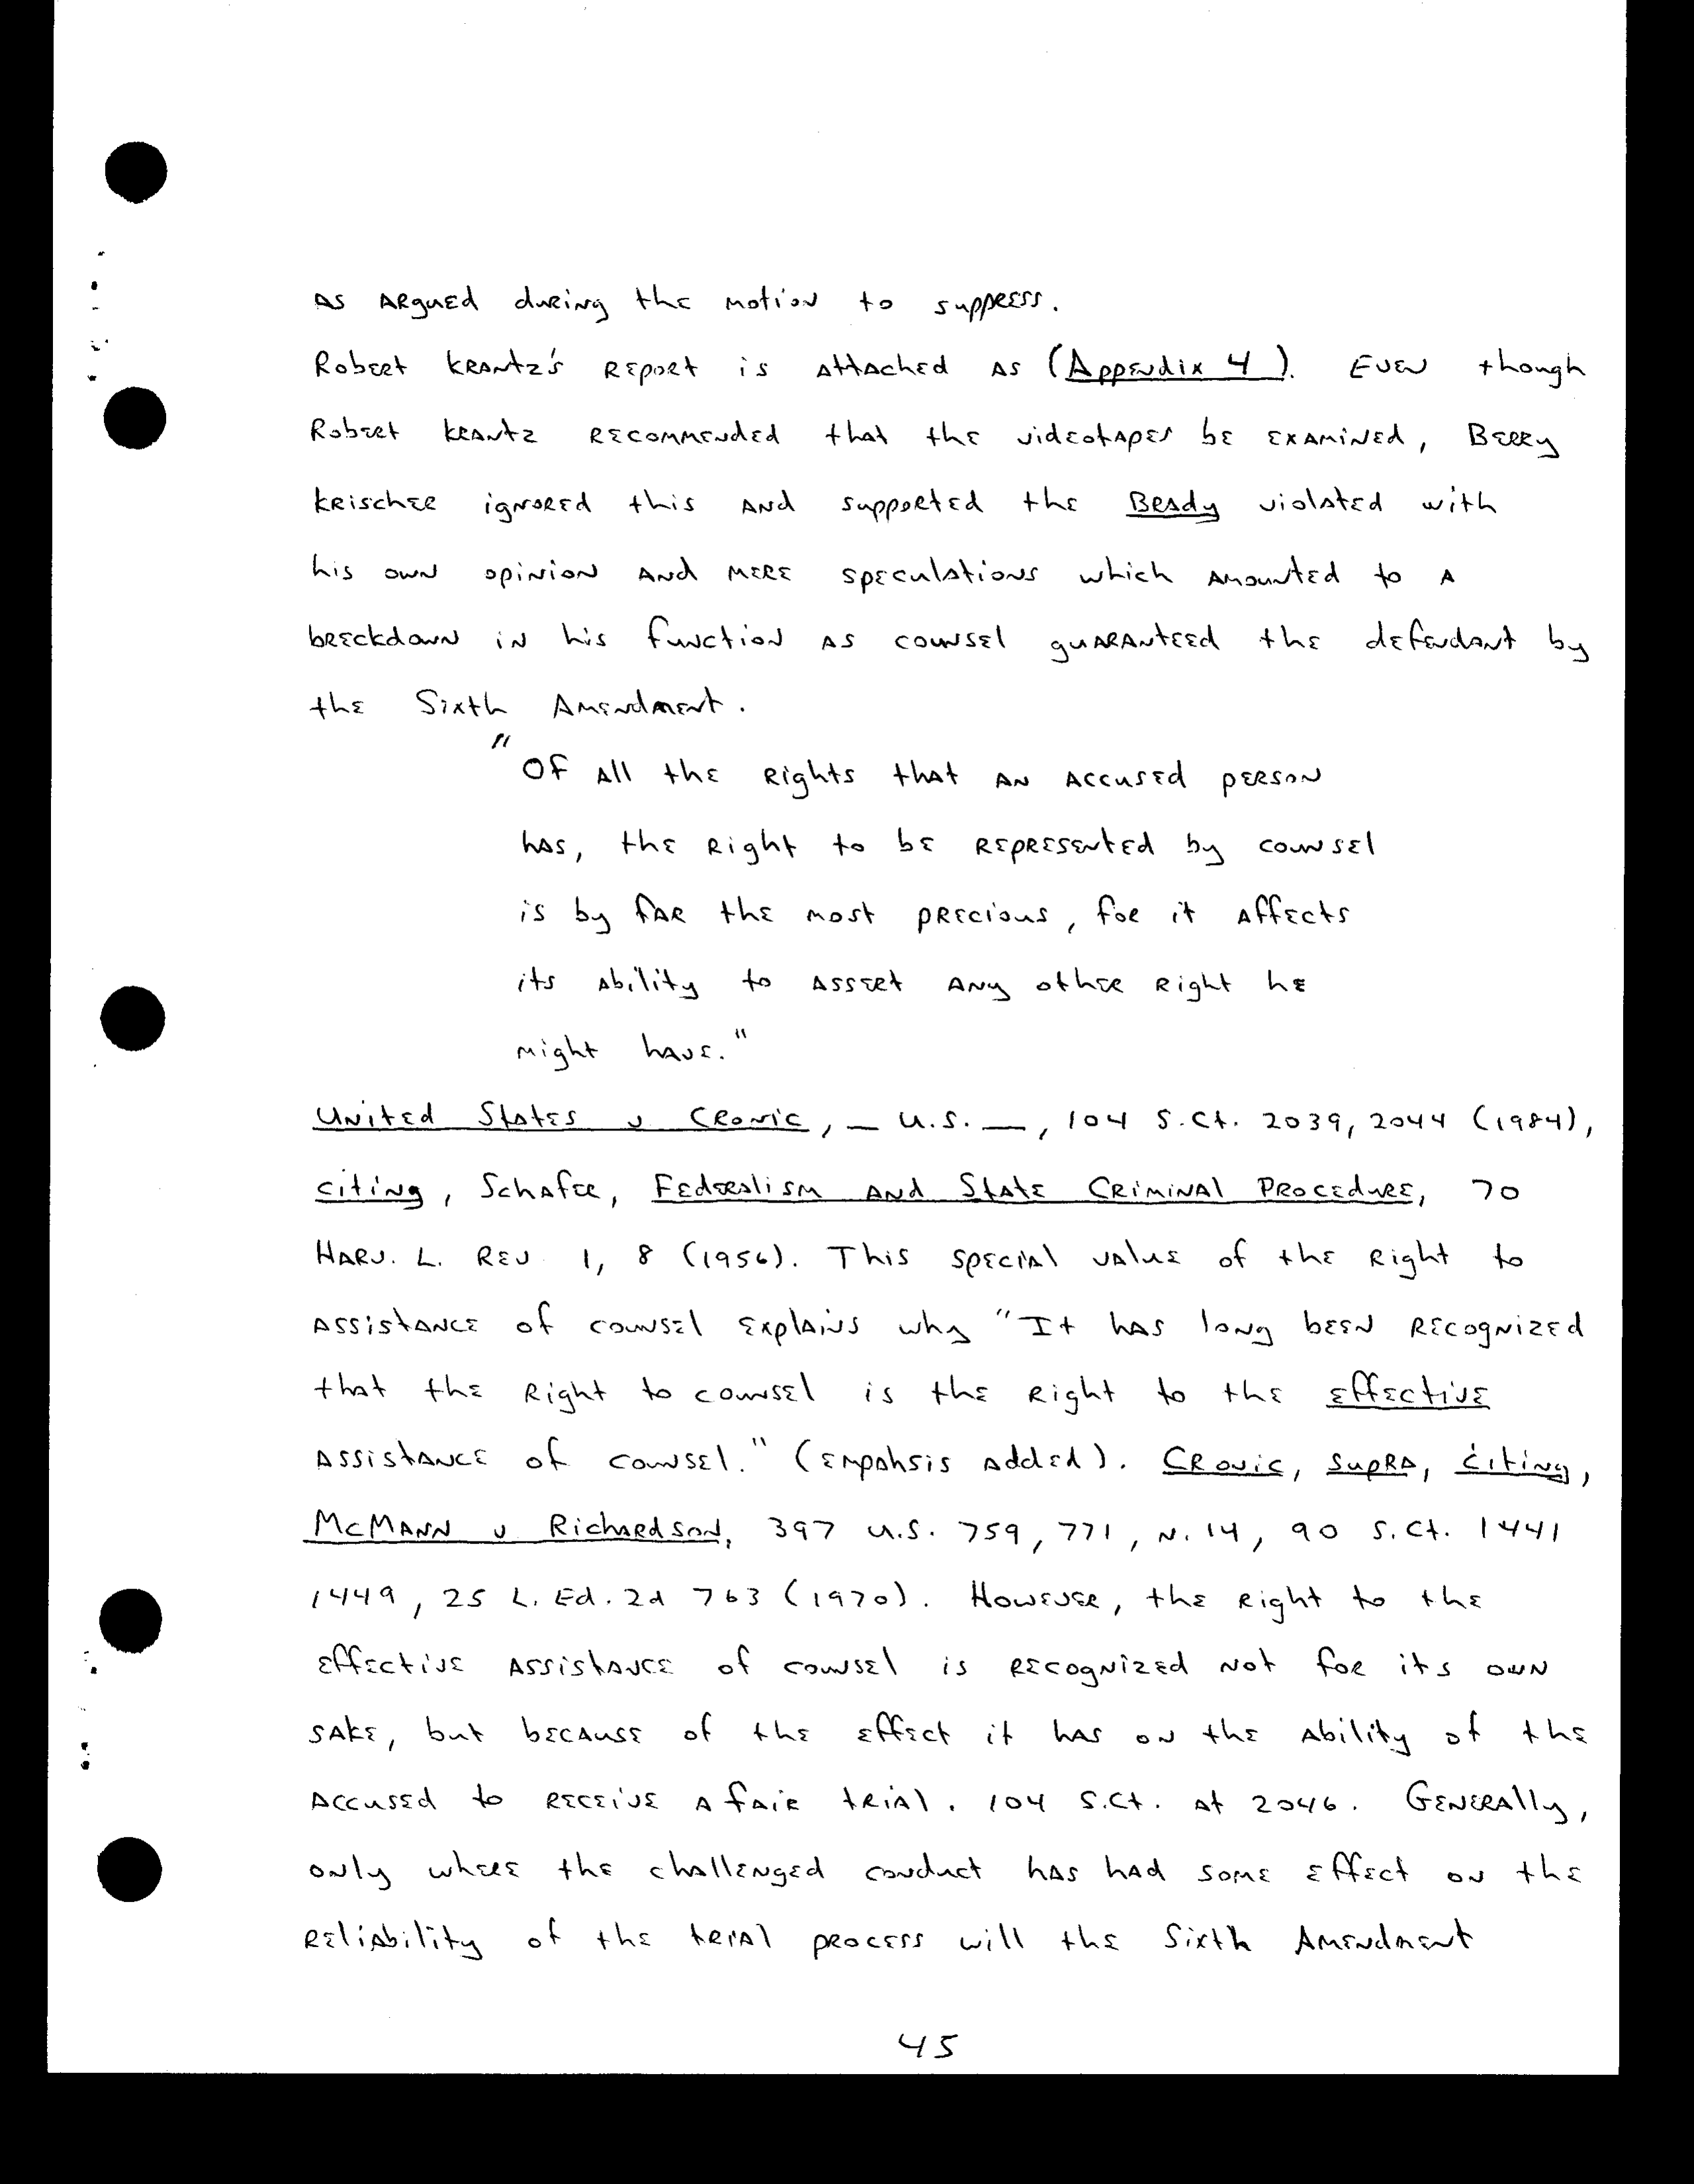 As argued during the motion to suppress.
Robert Krantz's report is attached as (Appendix 4). Even though
Robert Krantz recommended that the videotapes be examined, Berry
Krischer ignored this and supported the Brady violated with
his own opinion and mere speculations which amounted to a
breckdown in his function as counsel guaranteed the defendant by
the Sixth Amendment.
"Of all the rights that an accused person
has, the right to be represented by counsel
is by far the most precious, for it affects
its ability to assert any other right he
might have."
United States v Cronic, _ U.S. _, 104 S.Ct. 2039, 2044 (1984),
citing, Schafer, Federalism and State Criminal Procedure, 70
Harv. L. Rev. 1, 8 (1956). This special value of the right to
assistance of counsel explains why "It has long been recognized
that the right to counsel is the right to the effective
assistance of counsel." (empahsis added). Cronic, supra, citing,
McMann v Richardson, 397 U.S. 759, 771, N. 14, 90 S.Ct. 1441
1449, 25 L. Ed. 2d 763 (1970). However, the right to the
effective assistance of counsel is recognized not for its own
sake, but because of the effect it has on the ability of the
accused to receive a fair trial. 104 S.Ct. at 2046. Generally,
only where the challenged conduct has had some effect on the
reliability of the trial process will the Sixth Amendment
45